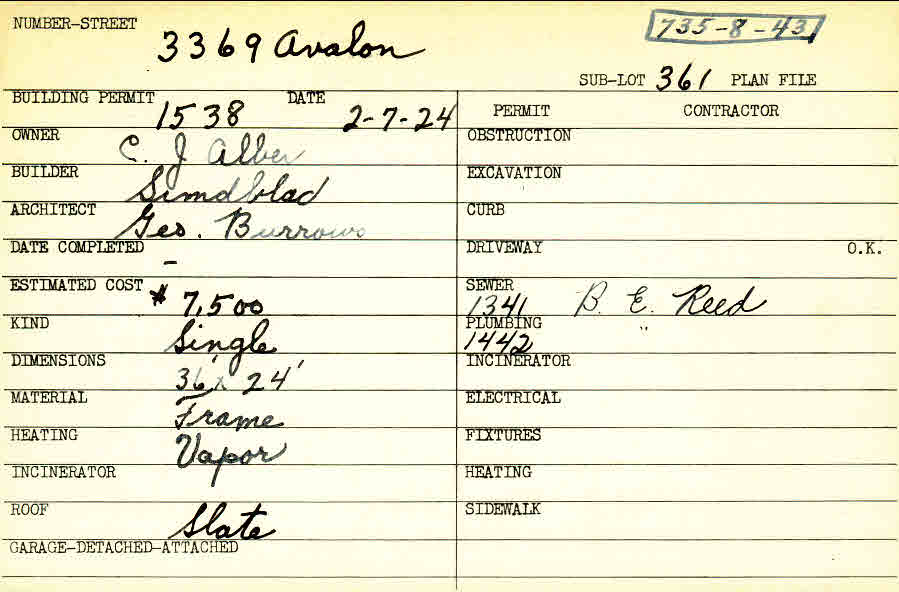 NUMBER-STREET 3369 Avalon
735-8-43
SUB-LOT 361 PLAN FILE
BUILDING PERMIT 1538 DATE 2-7-24
PERMIT CONTRACTOR
OWNER C. J. Alber
OBSTRUCTION
BUILDER Simdblad
EXCAVATION
ARCHITECT Geo. Burrows
CURB
DATE COMPLETED -
DRIVEWAY O.K.
ESTIMATED COST $ 7,500
SEWER 1341 B. E. Reed
KIND Single
PLUMBING 1442 "
DIMENSIONS 36' x 24'
INCINERATOR
MATERIAL Frame
ELECTRICAL
HEATING Vapor
FIXTURES
INCINERATOR
HEATING
ROOF Slate
SIDEWALK
GARAGE-DETACHED-ATTACHED